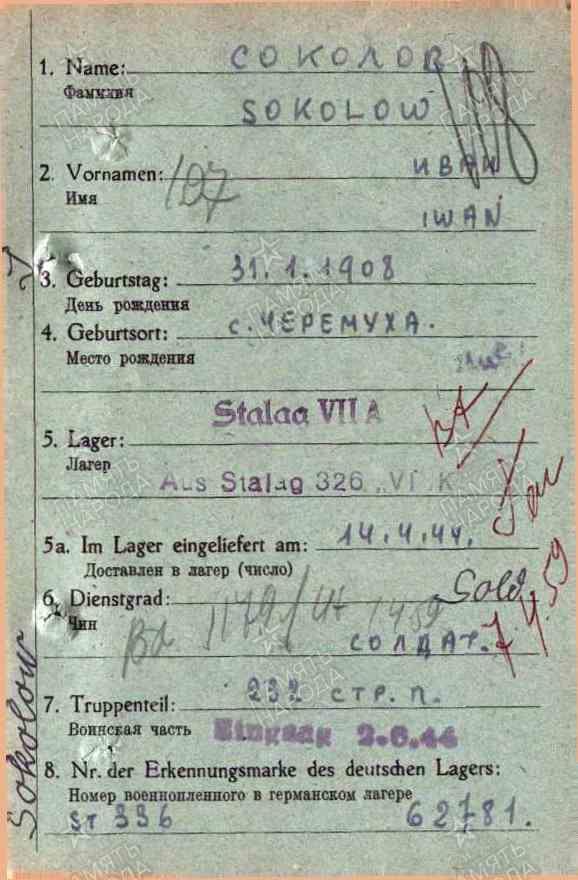 1. Name: СОКОЛОВ
Фамилия
SOKOLOW
2. Vornamen: ИВАН
Имя
107
IWAN
3. Geburtstag: 31.1.1908
День рождения
4. Geburtsort: с. ЧЕРЕМУХА.
Место рождения
Stalag VII A
5. Lager:
Лагер
Aus Stalag 326 „VI K
5a. Im Lager eingeliefert am: 14.4.44.
Доставлен в лагер (число)
6. Dienstgrad: Sold.
Чин
СОЛДАТ.
7. Truppenteil: 232 СТР. П.
Воинская часть Eingang 2.6.44
8. Nr. der Erkennungsmarke des deutschen Lagers:
Номер военнопленного в германском лагере
ST 336 62781.
Sokolow
ПАМЯТЬ НАРОДА